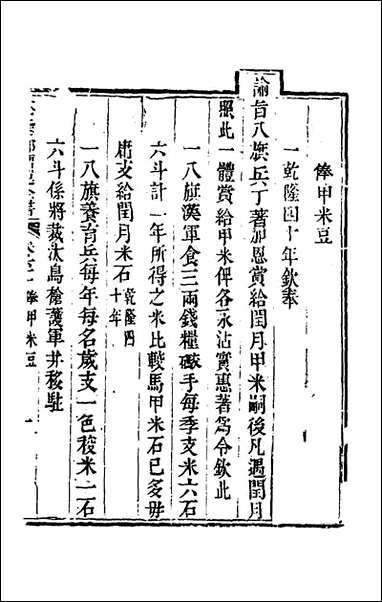 俸甲米豆
一乾隆四十年欽奉
諭旨八旗兵丁著加恩賞給閏月甲米嗣後凡遇閏月
照此一體賞給甲米俾各永沾實惠著爲令欽此
一八旗漢軍食三兩錢糧礮手每季支米六石
六斗計一年所得之米比較馬甲米石已多毋
庸支給閏月米石乾隆四十年
一八旗養育兵每年每名歲支一色稜米二石
六斗係將裁汰鳥槍護軍并移駐
俸甲米豆 一